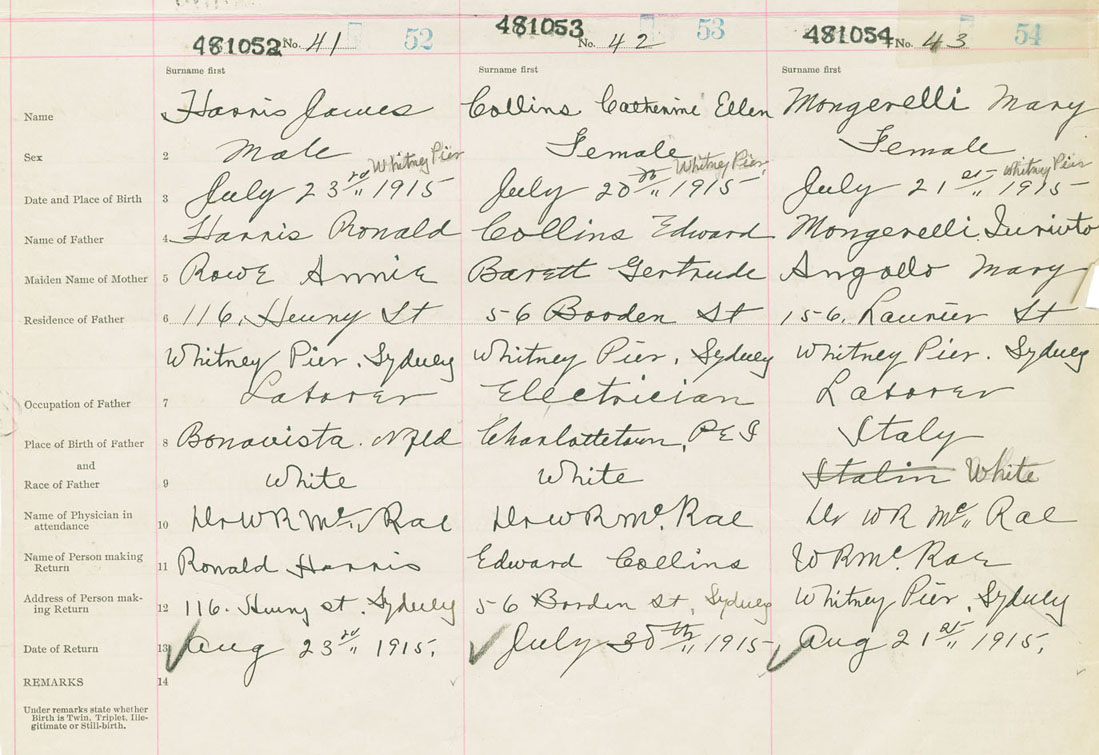 481052 No. 41 52 481053 No. 42 53 481054 No. 43 54
Surname first Surname first Surname first
Name Harris James Collins Catherine Ellen Mongerelli Mary
Sex 2 Male Female Female
Whitney Pier Whitney Pier, Whitney Pier
Date and Place of Birth 3 July 23rd 1915 July 20th 1915 July 21st 1915
Name of Father 4 Harris Ronald Collins Edward Mongerelli
Maiden Name of Mother 5 Rowe Annie Barett Gertrude Angollo Mary
Residence of Father 6 116, Henry St 56 Borden St 156, Laurier St
Whitney Pier, Sydney Whitney Pier, Sydney Whitney Pier. Sydney
Occupation of Father 7 Laborer Electrician Laborer
Place of Birth of Father 8 Bonavista. Nfld Charlottetown, P E I Italy
and
Race of Father 9 White White Italin White
Name of Physician in
attendance 10 Dr W R Mc. Rae Dr W R Mc. Rae Dr W R Mc. Rae
Name of Person making
Return 11 Ronald Harris Edward Collins W R Mc. Rae
Address of Person mak-
ing Return 12 116. Henry st. Sydney 56 Borden St, Sydney Whitney Pier, Sydney
Date of Return 13 Aug 23rd 1915. July 30th 1915 Aug 21st 1915.
REMARKS 14
Under remarks state whether
Birth is Twin, Triplet, Ille-
gitimate or Still-birth.